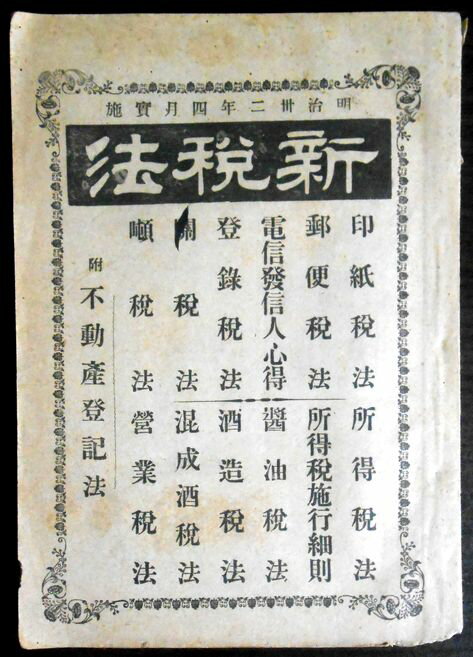 明治卅二年四月實施
新税法
印紙税法
郵便税法
電信發信人心得
登錄税法
關税法
噸税法
所得税法
所得税施行細則
醬油税法
酒造税法
混成酒税法
營業税法
附 不動產登記法